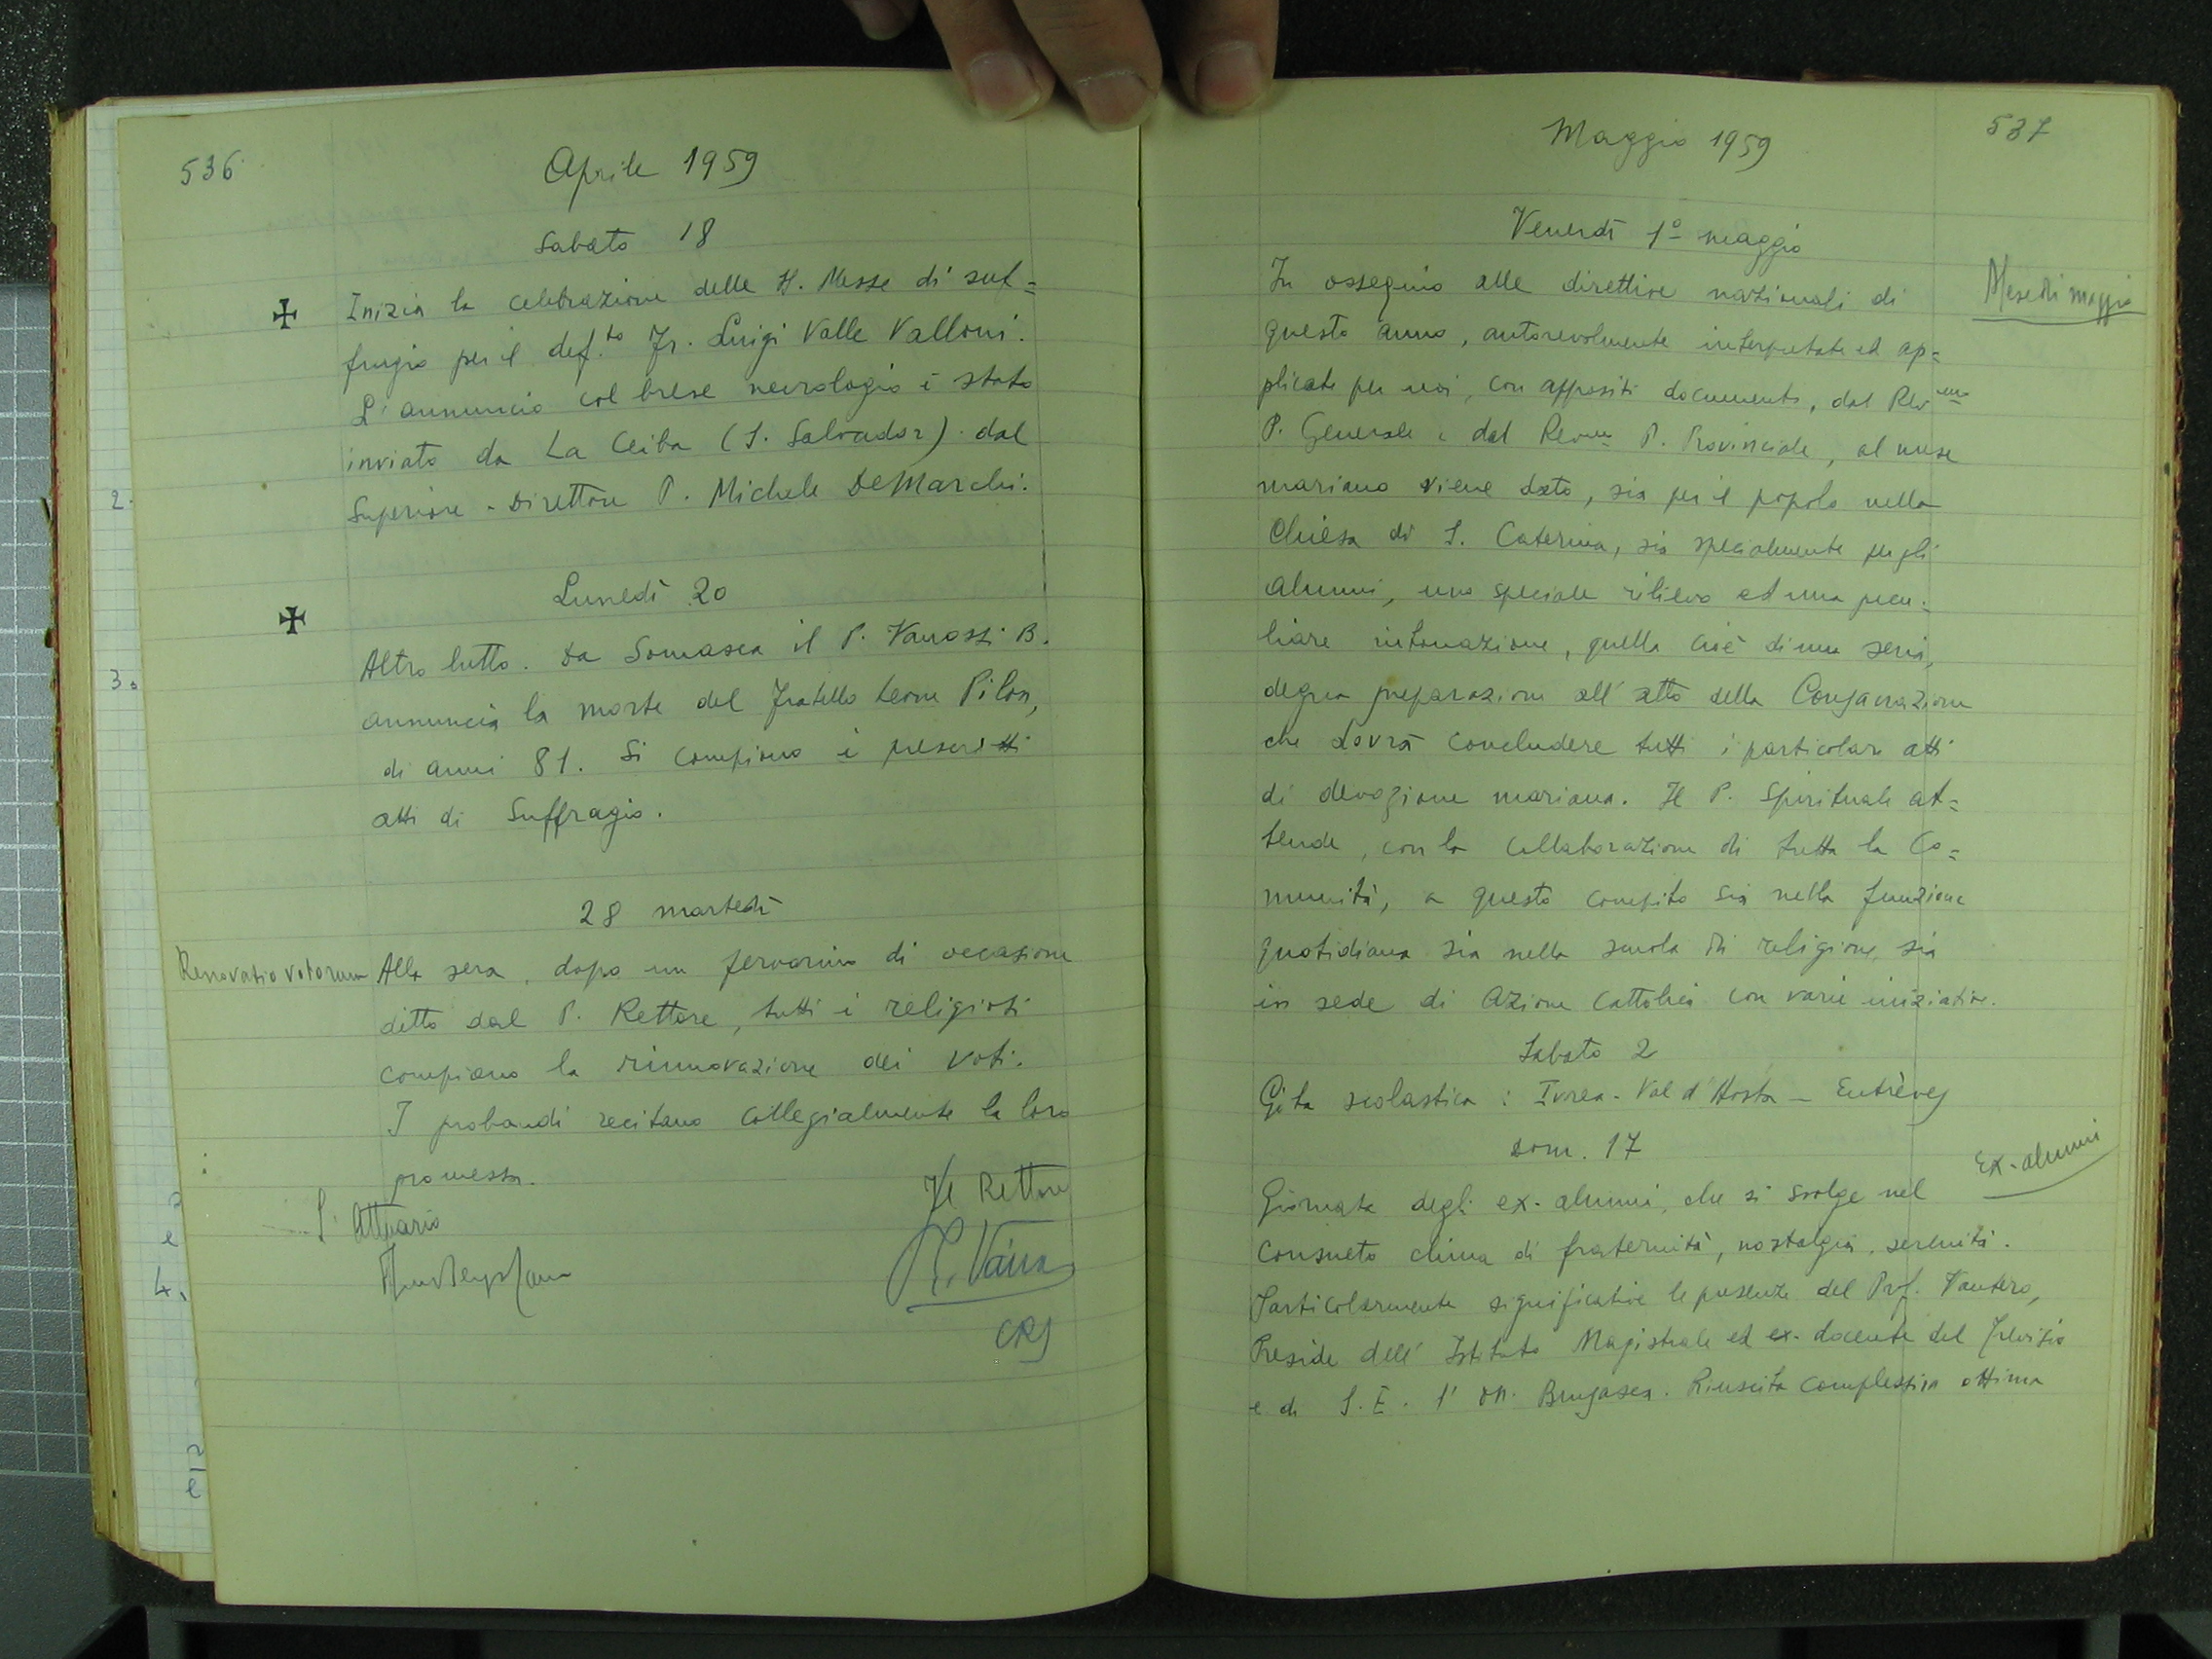 536
Aprile 1959
Sabato 18
Inizia la celebrazione delle SS. Messe di suf=
fragio per il def.to Fr. Luigi Valle Valloni.
L'annuncio col breve necrologio è stato
inviato da La Ceiba (S. Salvador) dal
Superiore - Direttore P. Michele DeMarchi.
Lunedì 20
Altro lutto. Da Somasca il P. Vanossi B.
annuncia la morte del Fratello Leone Pilon,
di anni 81. Si compiono i prescritti
atti di Suffragio.
28 martedì
Renovatio votorum
Alla sera, dopo un fervorino di occasione
ditto dal P. Rettore, tutti i religiosi
compiono la rinnovazione dei voti.
I probandi recitano collegialmente la loro
promessa.
L'Attuario
Il Rettore
P. Vaira
CRS
2.
3.
e
4.
e
537
Maggio 1959
Venerdì 1º maggio
Mese di maggio
In ossequio alle direttive nazionali di
questo anno, autorevolmente interpretate ed ap=
plicate per noi, con appositi documenti, dal Rev mo
P. Generale e dal Rev mo P. Provinciale, al mese
mariano viene dato, sia per il popolo nella
Chiesa di S. Caterina, sia specialmente per gli
alunni, uno speciale rilievo ed una pecu-
liare intonazione, quella cioè di una seria,
degna preparazione all'atto della Consacrazione
che dovrà concludere tutti i particolari atti
di devozione mariana. Il P. Spirituale at=
tende, con la collaborazione di tutta la Co=
munità, a questo compito sia nella funzione
quotidiana sia nella scuola di religione, sia
in sede di Azione Cattolica con varie iniziative.
Sabato 2
Gita scolastica: Ivrea - Val d'Aosta - Entrèves
Dom. 17
Ex-alunni
Giornata degli ex-alunni, che si svolge nel
consueto clima di fraternità, nostalgia, serenità.
Particolarmente significative le presenze del Prof. Vautero,
Preside dell'Istituto Magistrale ed ex-docente del
e di S.E. l'on. Brusasca. Riuscita complessiva ottima